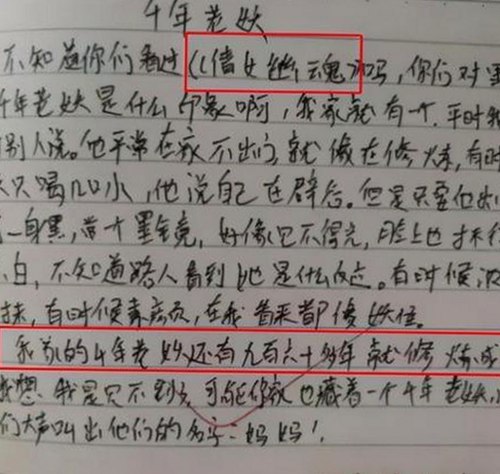 千年老妖
不知道你们看过《倩女幽魂》吗，你们对里
千年老妖是什么印象啊，我家就有一个，平时我
别人说。他平常在家不出门，就像在修炼，有时
只喝几口水，他说自己在辟谷。但是只要他出
一身黑，带个墨镜，好像见不得光，脸上也抹得
白，不知道路人看到她是什么反应。有时候浓
抹，有时候素颜，在我看来都像妖怪。
我家的千年老妖还有九百六十多年就修炼成
我想，我是见不到了，可能你家也藏着一个千年老妖，
们大声叫出他们的名字：妈妈！